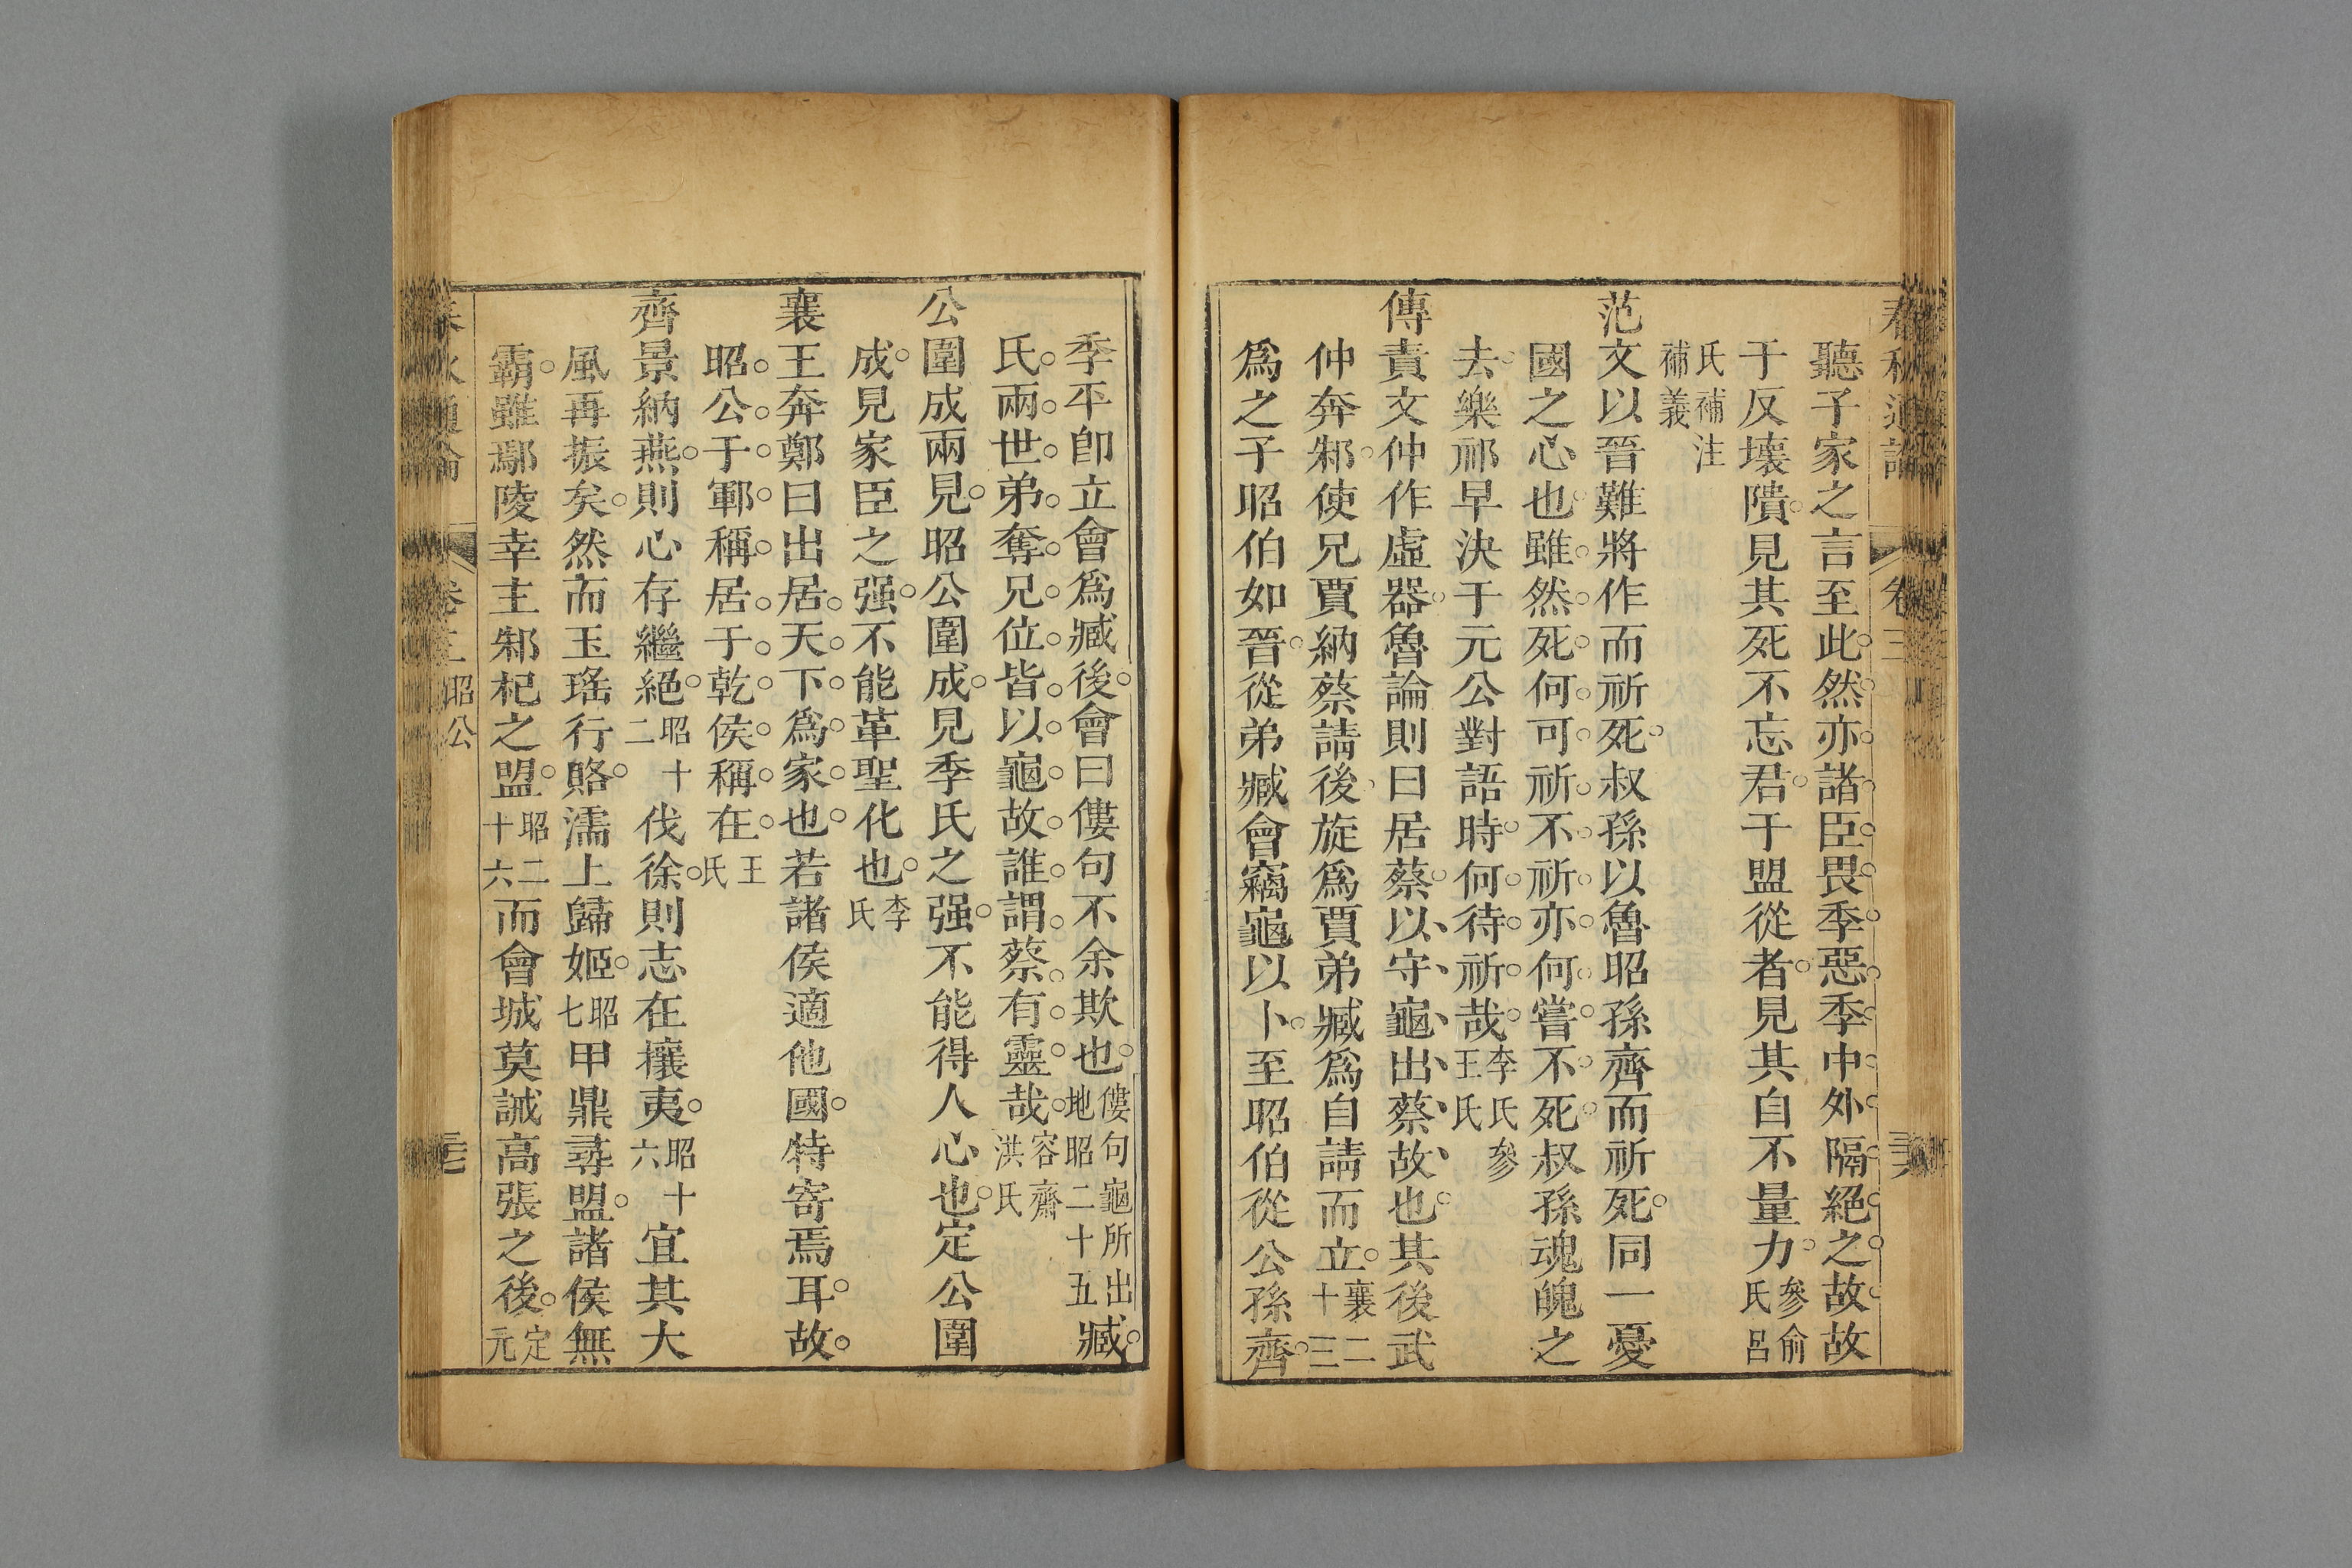 聽子家之言至此然亦諸臣畏季惡季中外隔絕之故故
于反壞隤見其死不忘君于盟從者見其自不量力參俞氏呂
氏補注補義
范文以晉難將作而祈死叔孫以魯昭孫齊而祈死同一憂
國之心也雖然死何可祈不祈亦何嘗不死叔孫魂魄之
去樂祁早決于元公對語時何待祈哉李氏參王氏
傳責文仲作虛器魯論則曰居蔡以守龜出蔡故也其後武
仲奔邾使兄賈納蔡請後旋爲賈弟臧爲自請而立襄二十三
爲之子昭伯如晉從弟臧會竊龜以卜至昭伯從公孫齊
季平卽立會爲臧後會曰僂句不余欺也僂句龜所出地昭二十五臧
氏兩世弟奪兄位皆以龜故誰謂蔡有靈哉容齋洪氏
公圍成兩見昭公圍成見季氏之强不能得人心也定公圍
成見家臣之强不能革聖化也李氏
襄王奔鄭曰出居天下爲家也若諸侯適他國特寄焉耳故
昭公于鄆稱居于乾侯稱在王氏
齊景納燕則心存繼絕昭十二伐徐則志在攘夷昭十六宜其大
風再振矣然而玉瑤行賂濡上歸姬昭七甲鼎尋盟諸侯無
霸雖鄢陵幸主邾杞之盟昭二十六而會城莫誡高張之後定元
卷三 昭公